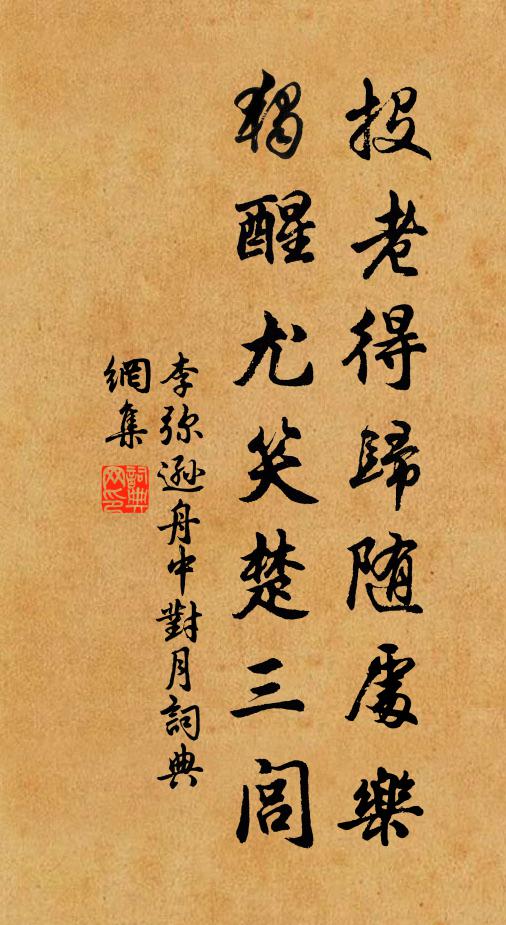 投老得歸随處樂
獨醒尤笑楚三閭
李弥遜舟中對月詞典
網集
詞典
网印